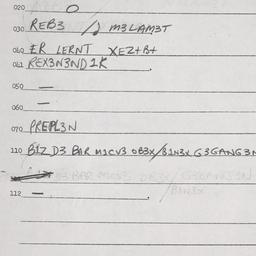 020 O
030 REB3 / M3LAM3T
040 ER LERNT XEZ+B+
041 REX3N3ND1K.
050 —
060 —
070 PREPL3N
110 B1Z D3 BAR M1CV3 OB3X/B1N3X G3GANG3N
112 —